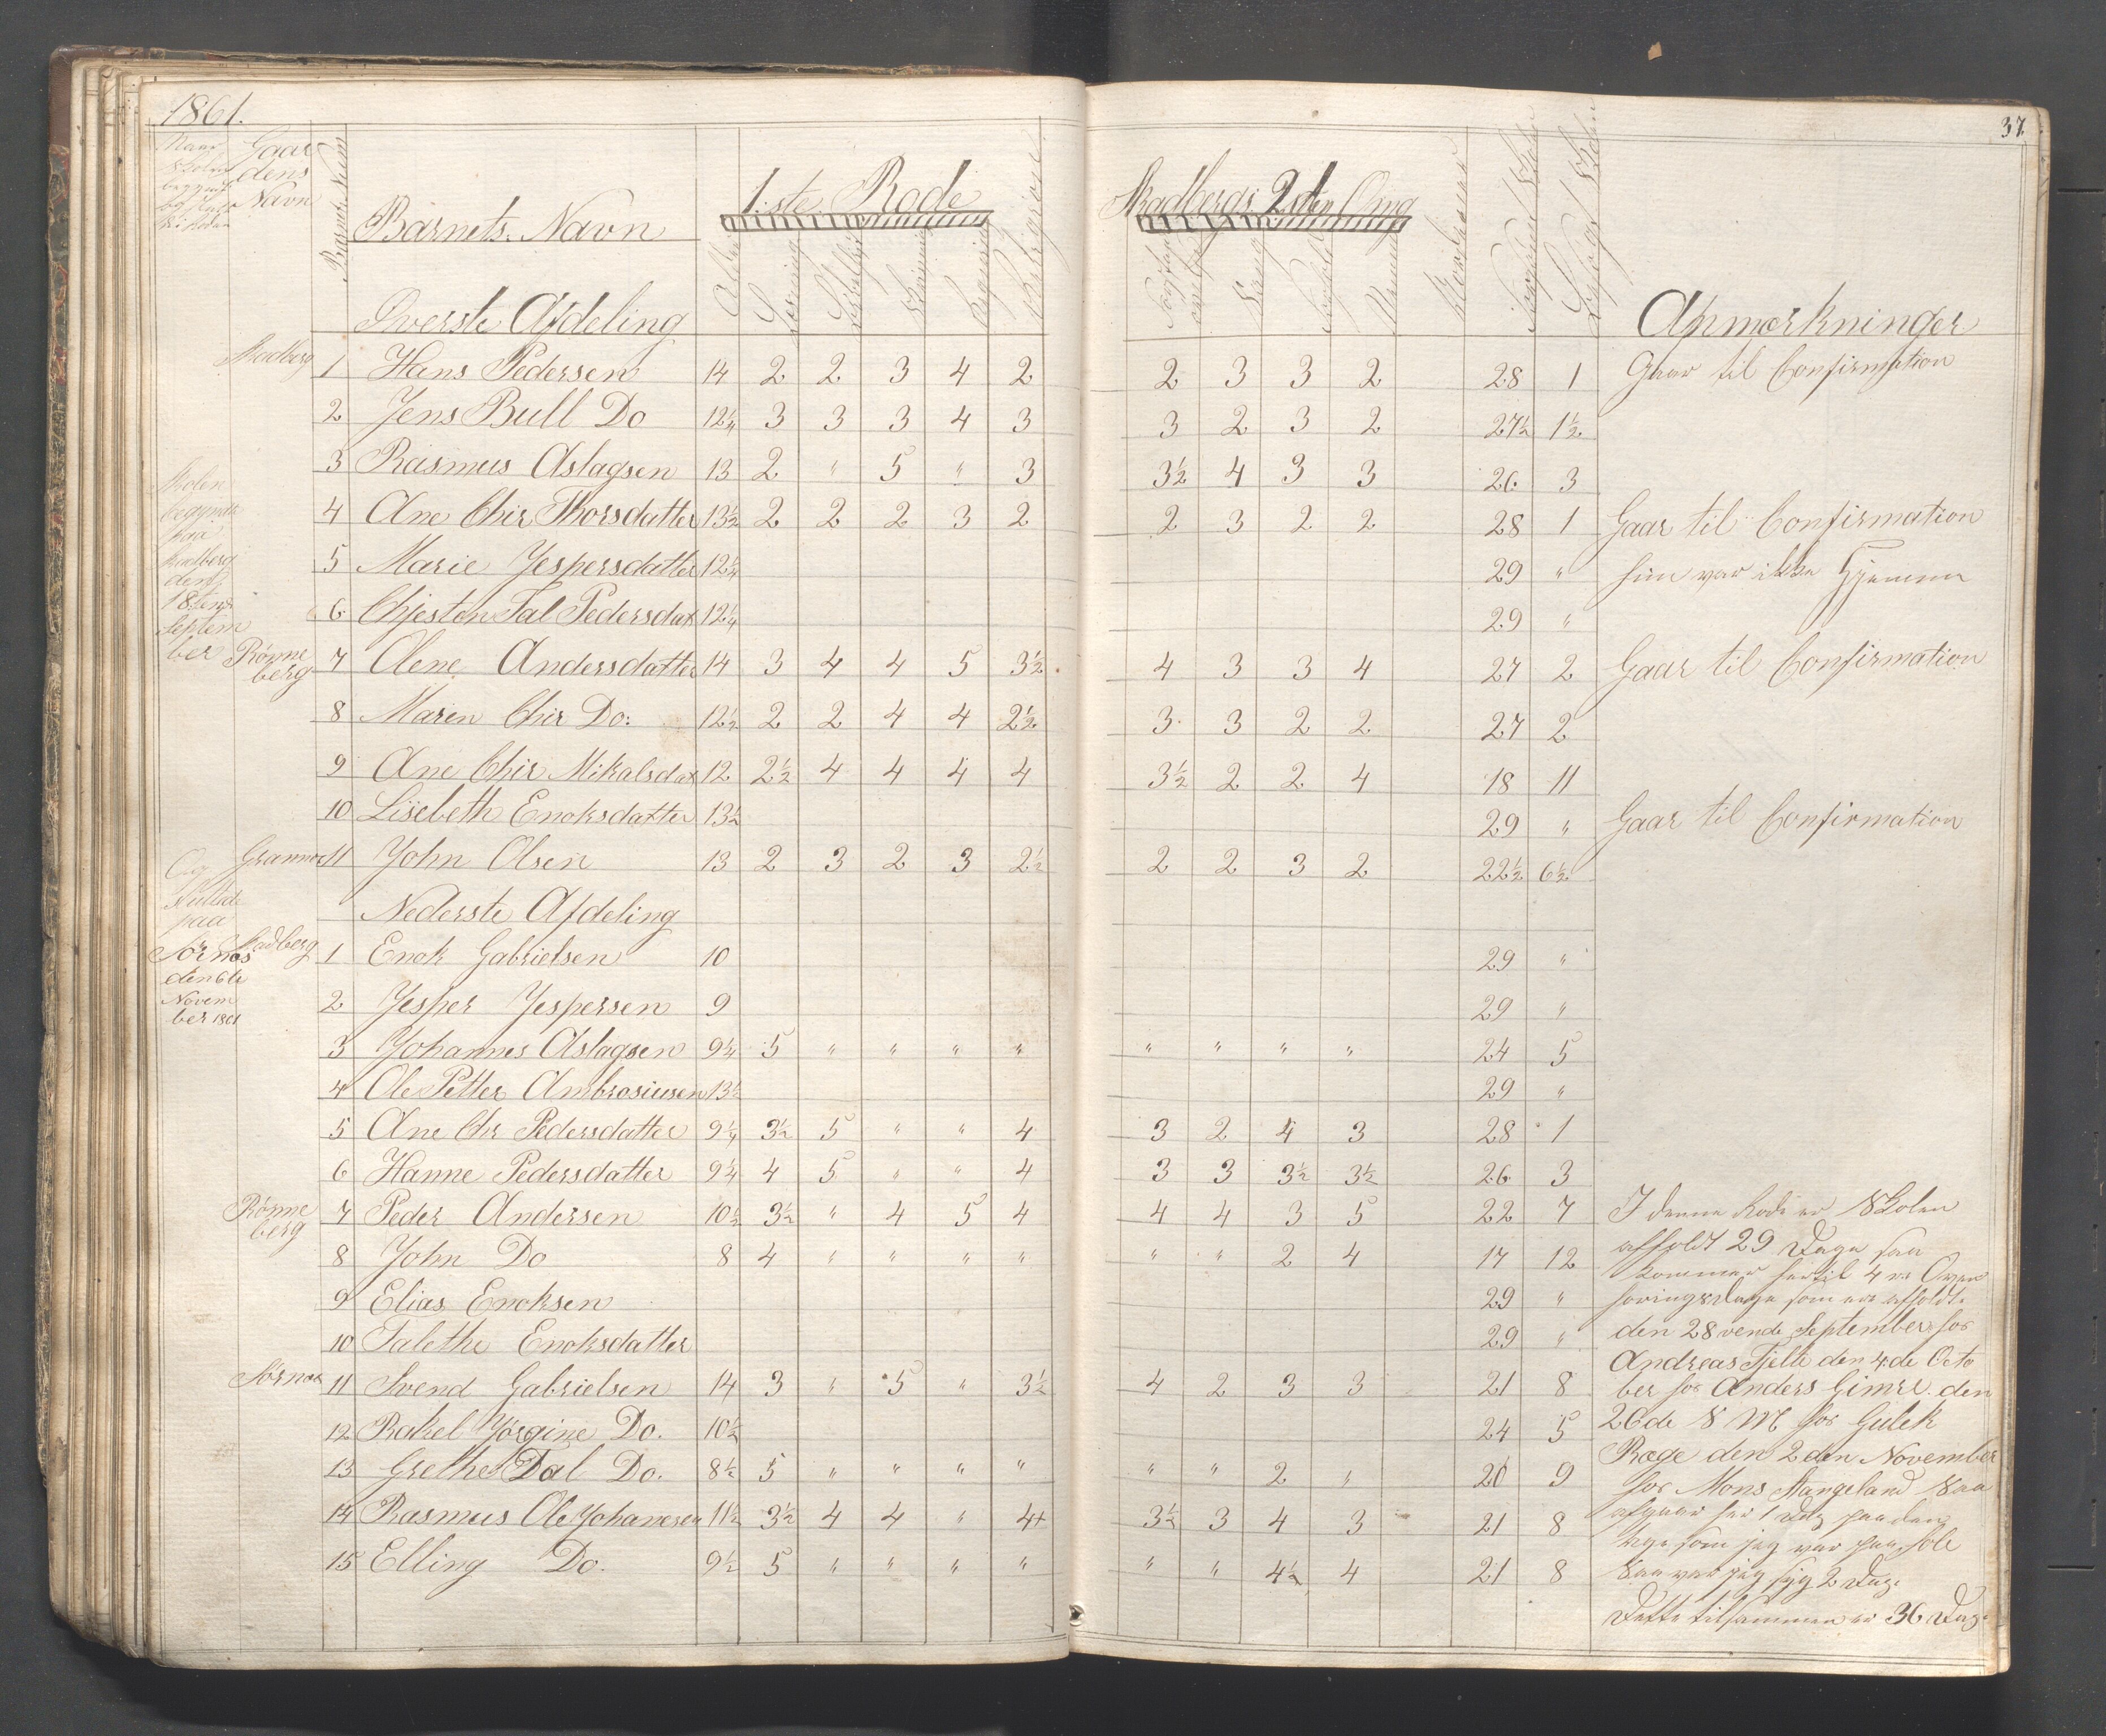 1861.
37.
Gaar
dens
Navn
Barnets Navn
1:ste Rode
Skadbergs 2den Omg
Anmærkninger
Øverste Afdeling
Skadberg 1 Hans Pedersen 14 2 2 3 4 2 2 3 3 2 28 1 Gaar til Confirmation
2 Jens Bull Do 12¼ 3 3 3 4 3 3 2 3 2 27½ 1½
3 Rasmus Aslagsen 13 2 " 5 " 3 3½ 4 3 3 26 3
4 Ane Chir Thorsdatter 13½ 2 2 2 3 2 2 3 2 2 28 1 Gaar til Confirmation
5 Marie Jespersdatter 12¼ 29 " hun var ikke Hjemme
6 Chjeston Tal Pedersdat 12¼ 29 "
Rønne
berg 7 Olene Andersdatter 14 3 4 4 5 3½ 4 3 3 4 27 2 Gaar til Confirmation
8 Maren Chir Do: 12½ 2 2 4 4 2½ 3 3 2 2 27 2
9 Ane Chir Mikalsdat 12 2½ 4 4 4 4 3½ 2 2 4 18 11
10 Lisebeth Enoksdatter 13½ 29 " Gaar til Confirmation
Grannes 11 John Olsen 13 2 3 2 3 2½ 2 2 3 2 22½ 6½
Nederste Afdeling
Skadberg 1 Enok Gabrielsen 10 29 "
2 Jesper Jespersen 9 29 "
3 Johannes Aslagsen 9¼ 5 " " " " " " " " 24 5
4 Ole Petter Ambrosiusen 13½ 29 "
5 Ane Chr Pedersdatter 9¼ 3½ 5 " " 4 3 2 4 3 28 1
6 Hanne Pedersdatter 9¼ 4 5 " " 4 3 3 3½ 3½ 26 3
Rønne
berg 7 Peder Andersen 10½ 3½ " 4 5 4 4 4 3 5 22 7
8 John Do 8 4 " " " " " " 2 4 17 12
9 Elias Enoksen 29 "
10 Talethe Enoksdatter 29 "
Sørnes 11 Svend Gabrielsen 14 3 " 5 " 3½ 4 2 3 3 21 8
12 Rakel Jørgine Do. 10½ 24 5
13 Grethe Tal Do. 8½ 5 " " " " " " 2 " 20 9
14 Rasmus Ole Johanesen 11½ 3½ 4 4 " 4+ 3½ 3 4 3 21 8
15 Elling Do. 9½ 5 " " " " " " 4½ 4 21 8
Skolen
begynde
paa
Skadberg
den
18tende
Septem
ber
Og
sluttede
paa
Sørnes
den 6te
Novem
ber 1861
I denne Rode er Skolen
afholdt 29 Dage saa
kommer hertil 4re Over
høringsDage som ere afholdt
den 28vende September hos
Andreas Tjelte den 4:de Octo
ber hos Anders Gimre den
26de S M hos Gulek
Røge den 2den November
hos Mons Stangeland Saa
afgaar her 1 Dag paa den
uge som jeg var paa Sole
Saa var jeg syg 2 Dage
Dette tilsammen er 36 Dage